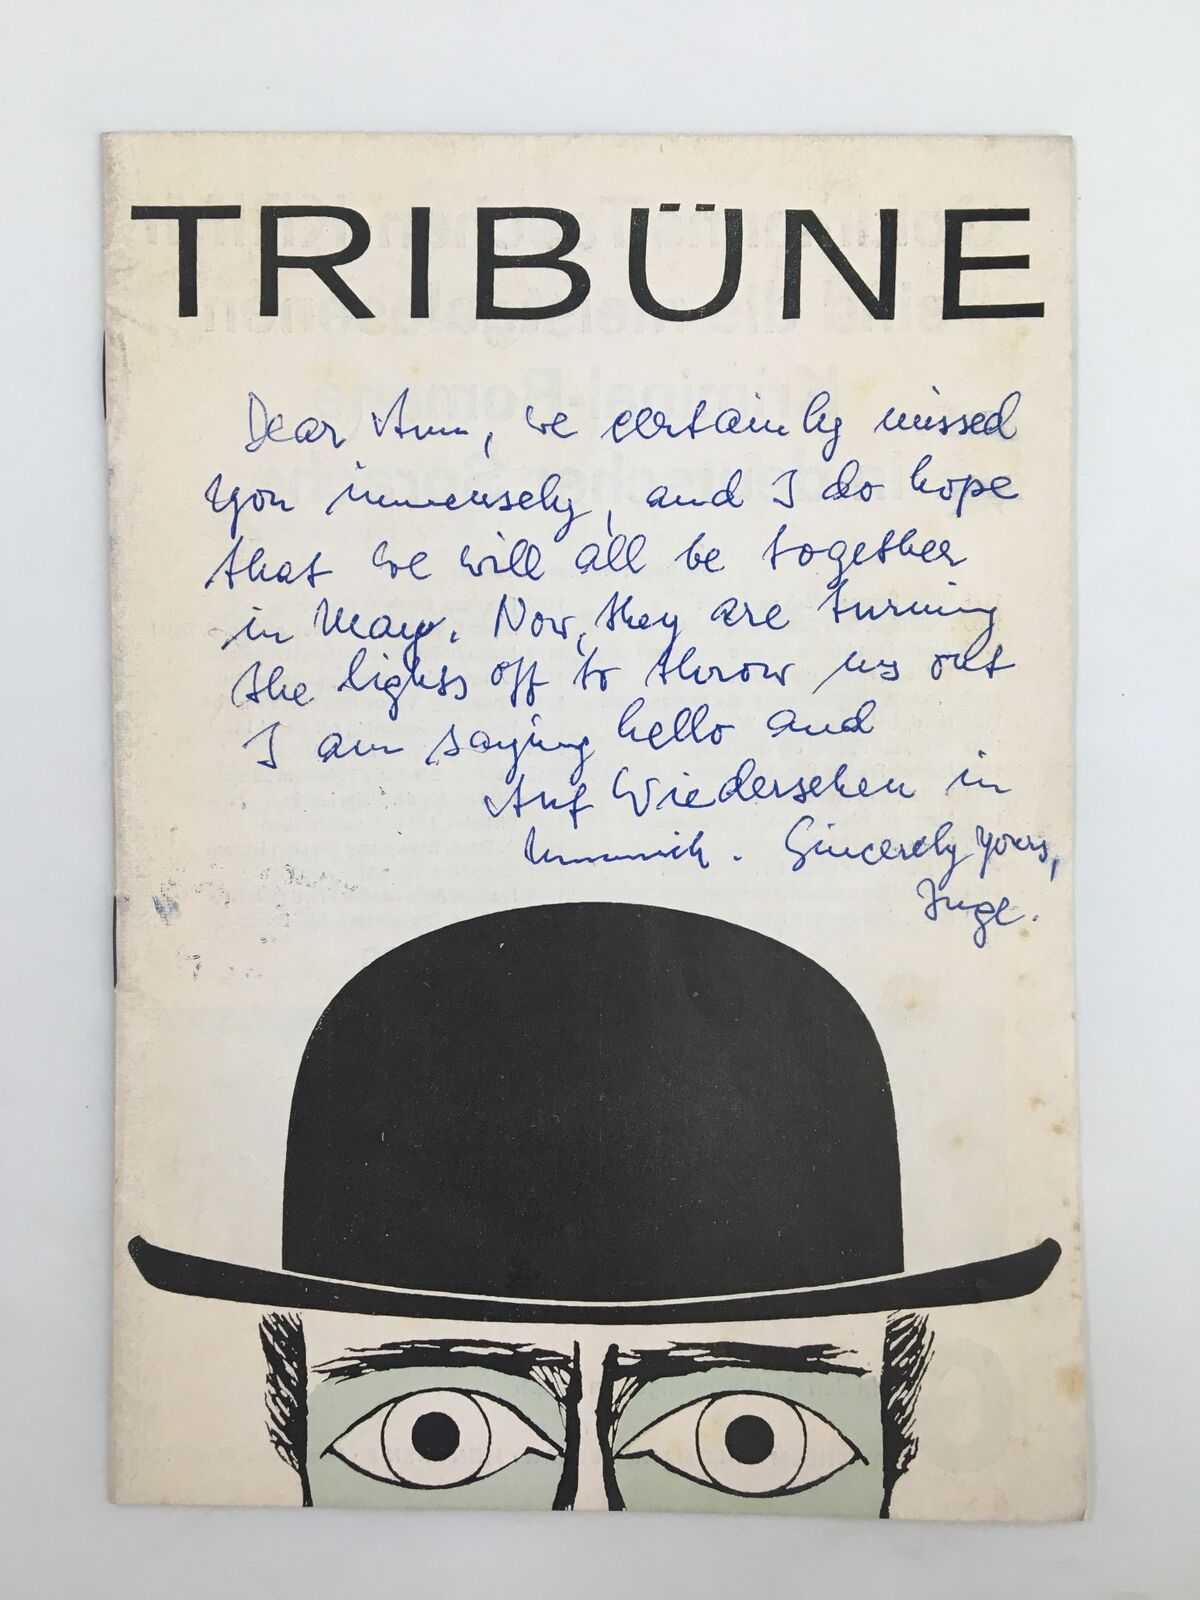 TRIBÜNE
Dear Ann, we certainly missed
you immensely, and I do hope
that we will all be together
in May. Now, they are turning
the lights off to throw us out
I am saying hello and
Auf Wiedersehen in
Sincerely yours,
Inge.